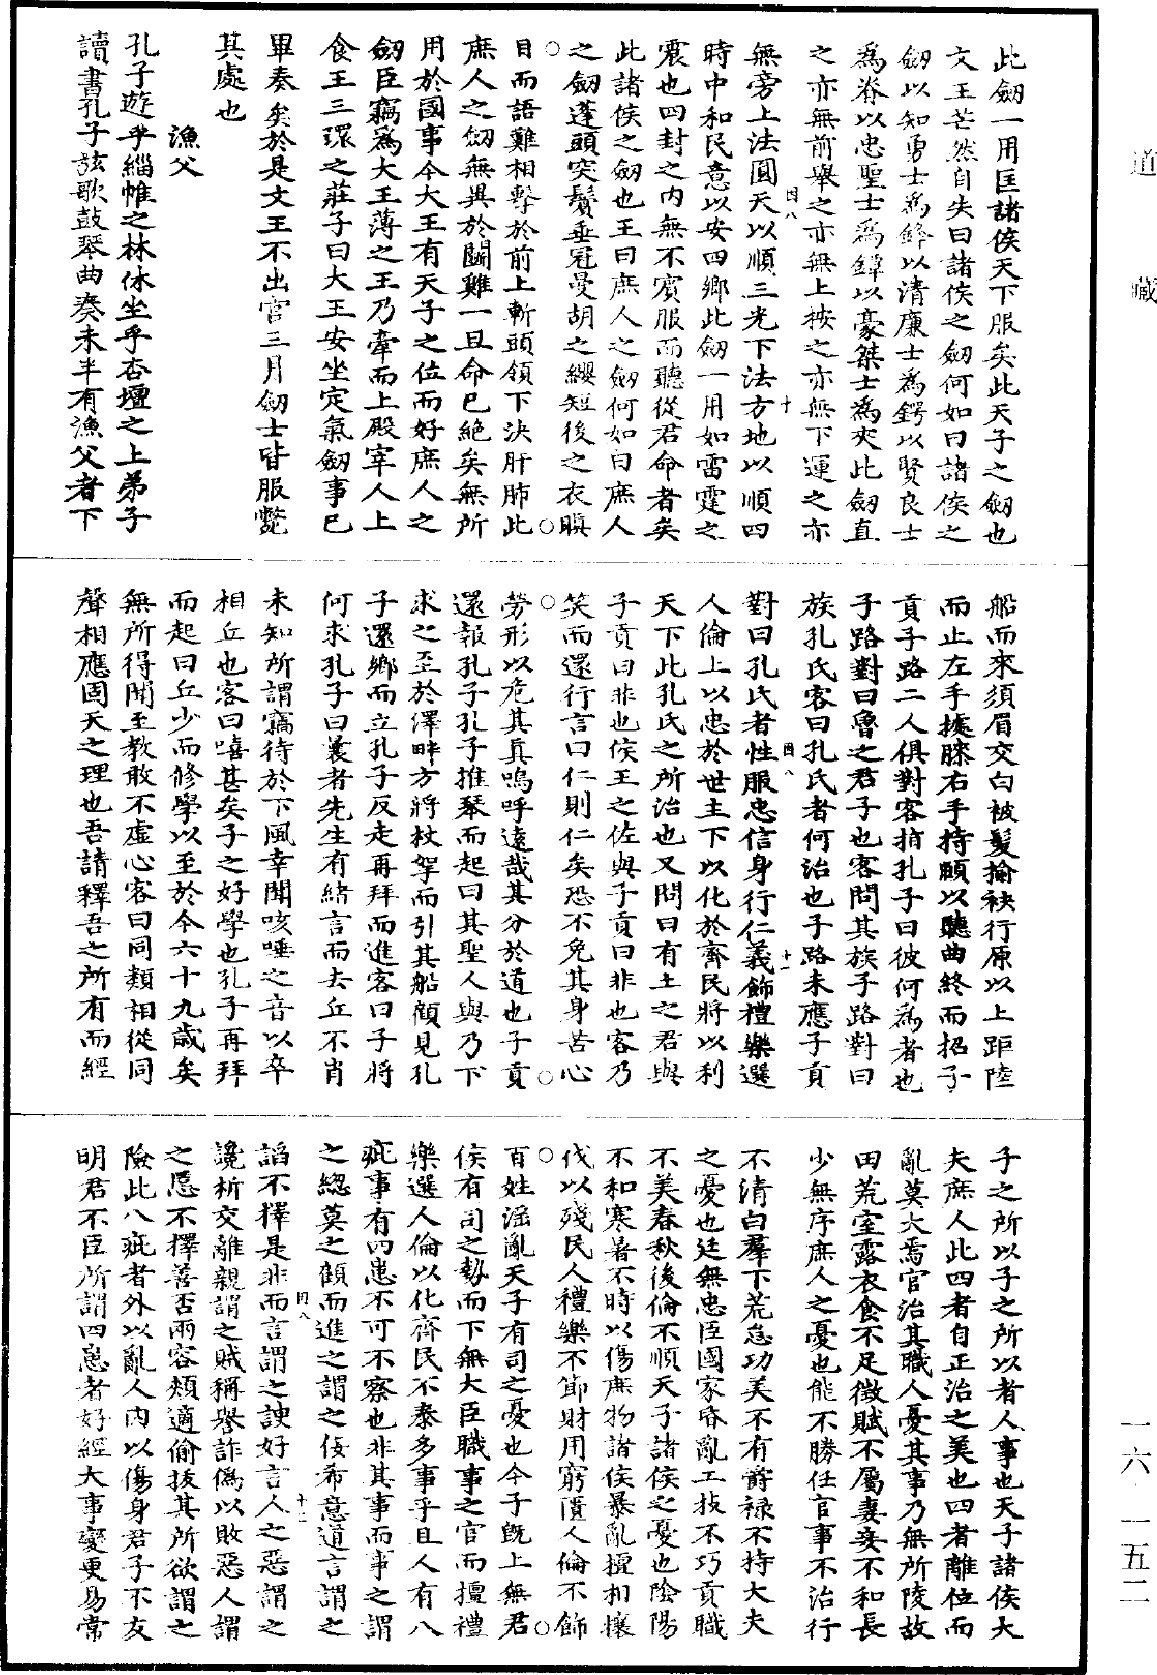 道藏
此劒一用匡諸侯天下服矣此天子之劒也
文王芒然自失曰諸侯之劒何如曰諸侯之
劒以知勇士爲鋒以清廉士爲鍔以賢良士
爲脊以忠聖士爲鐔以豪桀士爲夾此劒直
之亦無前舉之亦無上按之亦無下運之亦
四八
十
無旁上法圓天以順三光下法方地以順四
時中和民意以安四鄉此劒一用如雷霆之
震也四封之內無不賓服而聽從君命者矣
此諸侯之劒也王曰庶人之劒何如曰庶人
之劒蓬頭突鬢垂冠曼胡之纓短後之衣瞋
目而語難相擊於前上斬頭領下決肝肺此
庶人之劒無異於鬭雞一旦命已絕矣無所
用於國事今大王有天子之位而好庶人之
劒臣竊爲大王薄之王乃牽而上殿宰人上
食王三環之莊子曰大王安坐定氣劒事已
畢奏矣於是文王不出宮三月劒士皆服斃
其處也
漁父
孔子遊乎緇帷之林休坐乎杏壇之上弟子
讀書孔子弦歌鼓琴曲奏未半有漁父者下
船而來須眉交白被髮揄袂行原以上距陸
而止左手據膝右手持頤以聽曲終而招子
貢子路二人俱對客指孔子曰彼何爲者也
子路對曰魯之君子也客問其族子路對曰
族孔氏客曰孔氏者何治也子路未應子貢
四八
十一
對曰孔氏者性服忠信身行仁義飾禮樂選
人倫上以忠於世主下以化於齊民將以利
天下此孔氏之所治也又問曰有土之君與
子貢曰非也侯王之佐與子貢曰非也客乃
笑而還行言曰仁則仁矣恐不免其身苦心
勞形以危其真嗚呼遠哉其分於道也子貢
還報孔子孔子推琴而起曰其聖人與乃下
求之至於澤畔方將杖拏而引其船顧見孔
子還鄉而立孔子反走再拜而進客曰子將
何求孔子曰曩者先生有緒言而去丘不肖
未知所謂竊待於下風幸聞咳唾之音以卒
相丘也客曰嘻甚矣子之好學也孔子再拜
而起曰丘少而修學以至於今六十九歲矣
無所得聞至教敢不虛心客曰同類相從同
聲相應固天之理也吾請釋吾之所有而經
子之所以子之所以者人事也天子諸侯大
夫庶人此四者自正治之美也四者離位而
亂莫大焉官治其職人憂其事乃無所陵故
田荒室露衣食不足徵賦不屬妻妾不和長
少無序庶人之憂也能不勝任官事不治行
不清白羣下荒怠功美不有爵祿不持大夫
之憂也廷無忠臣國家昏亂工技不巧貢職
不美春秋後倫不順天子諸侯之憂也陰陽
不和寒暑不時以傷庶物諸侯暴亂擅相攘
伐以殘民人禮樂不節財用窮匱人倫不飾
百姓淫亂天子有司之憂也今子旣上無君
侯有司之勢而下無大臣職事之官而擅禮
樂選人倫以化齊民不泰多事乎且人有八
疵事有四患不可不察也非其事而事之謂
之緫莫之顧而進之謂之佞希意道言謂之
四八
十二
謟不擇是非而言謂之諛好言人之惡謂之
讒析交離親謂之賊稱譽詐僞以敗惡人謂
之慝不擇善否兩容頰適偷拔其所欲謂之
險此八疵者外以亂人內以傷身君子不友
明君不臣所謂四患者好經大事變更易常
一六·一五二